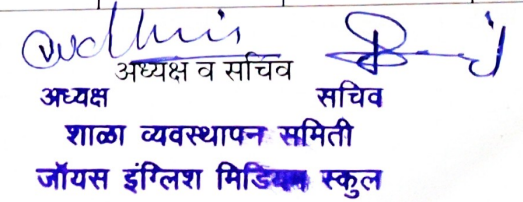 अध्यक्ष व सचिव
अध्यक्ष सचिव
शाळा व्यवस्थापन समिती
जॉयस इंग्लिश मिडियम स्कुल